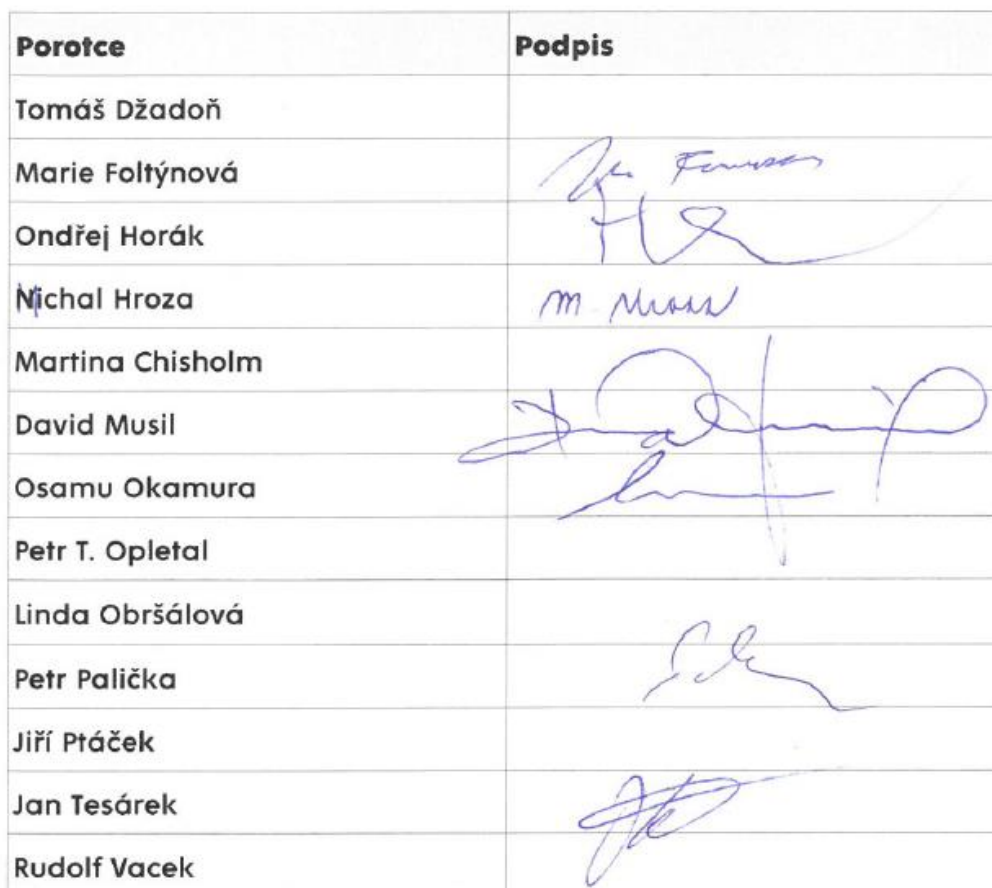 Porotce Podpis
Tomáš Džadoň
Marie Foltýnová
Ondřej Horák
Michal Hroza
Martina Chisholm
David Musil
Osamu Okamura
Petr T. Opletal
Linda Obršálová
Petr Palička
Jiří Ptáček
Jan Tesárek
Rudolf Vacek